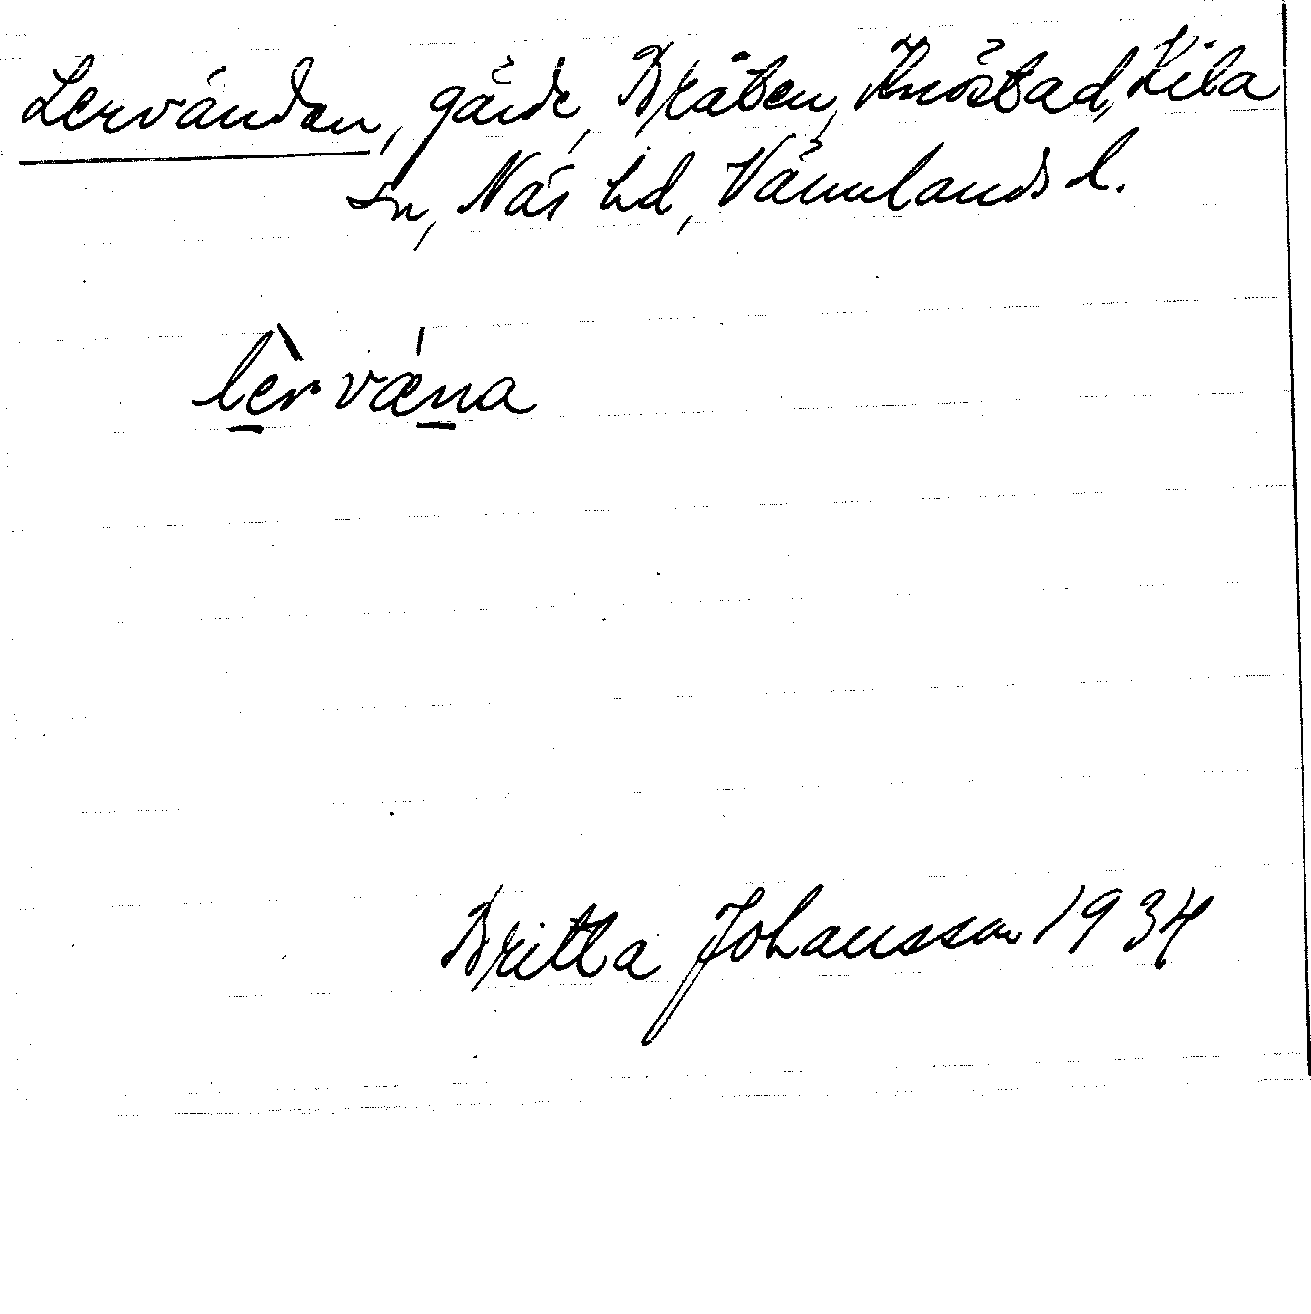 Lervändan, gärde, Bråten, Knöstad, Kila
sn, Näs hd, Värmlands l.
lèrvǽna
Britta Johansson 1934